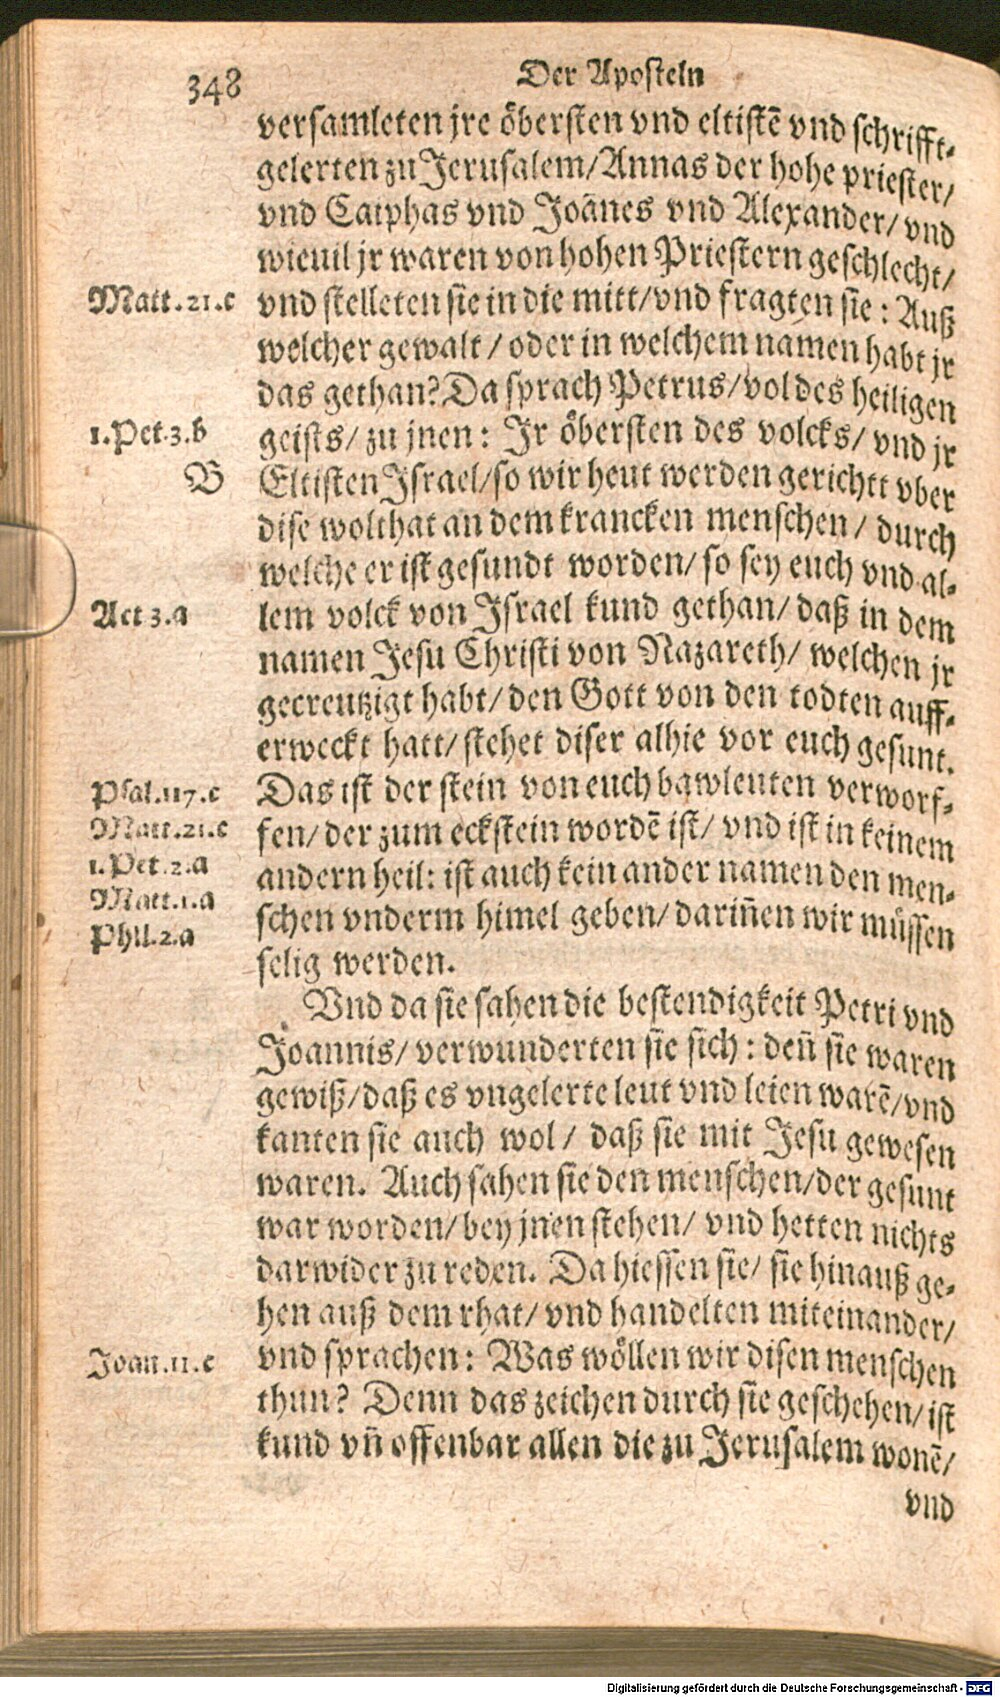 348
Der Aposteln
versamleten jre öbersten vnd eltistē vnd schrifft-
gelerten zu Jerusalem/Annas der hohe priester/
vnd Caiphas vnd Joānes vnd Alexander/vnd
wieuil jr waren von hohen Priestern geschlecht/
Matt.21.c
vnd stelleten sie in die mitt/vnd fragten sie: Auß
welcher gewalt/oder in welchem namen habt jr
das gethan? Da sprach Petrus/vol des heiligen
1.Pet.3.b
geists/zu jnen: Jr öbersten des volcks/vnd jr
B
Eltisten Israel/so wir heut werden gerichtt vber
dise wolthat an dem krancken menschen/durch
welche er ist gesundt worden/so sey euch vnd al-
Act 3.a
lem volck von Israel kund gethan/daß in dem
namen Jesu Christi von Nazareth/welchen jr
gecreutzigt habt/den Gott von den todten auff-
erweckt hatt/stehet diser alhie vor euch gesunt.
Psal.117.c
Das ist der stein von euch bawleuten verworf-
Matt.21.c
fen/der zum eckstein wordē ist/vnd ist in keinem
1.Pet.2.a
andern heil: ist auch kein ander namen den men-
Matt.1.a
schen vnderm himel geben/dariñen wir müssen
Phil.2.a
selig werden.
Vnd da sie sahen die bestendigkeit Petri vnd
Joannis/verwunderten sie sich: deñ sie waren
gewiß/daß es vngelerte leut vnd leien warē/vnd
kanten sie auch wol/daß sie mit Jesu gewesen
waren. Auch sahen sie den menschen/der gesunt
war worden/bey jnen stehen/vnd hetten nichts
darwider zu reden. Da hiessen sie/sie hinauß ge-
hen auß dem rhat/vnd handelten miteinander/
Joan.11.e
vnd sprachen: Was wöllen wir disen menschen
thun? Denn das zeichen durch sie geschehen/ist
kund vñ offenbar allen die zu Jerusalem wonē/
vnd
Digitalisierung gefördert durch die Deutsche Forschungsgemeinschaft - DFG